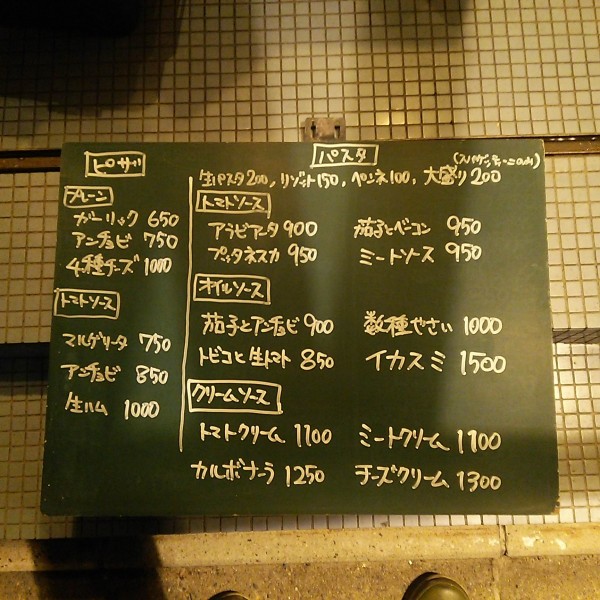 ピザ
プレーン
ガーリック 650
アンチョビ 750
4種チーズ 1000
トマトソース
マルゲリータ 750
アンチョビ 850
生ハム 1000
パスタ
生パスタ200, リゾット150, ペンネ100, 大盛り200
トマトソース
アラビアータ 900 茄子とベーコン 950
プッタネスカ 950 ミートソース 950
オイルソース
茄子とアンチョビ 900 数種やさい 1000
トビコと生トマト 850 イカスミ 1500
クリームソース
トマトクリーム 1100 ミートクリーム 1100
カルボナーラ 1250 チーズクリーム 1300